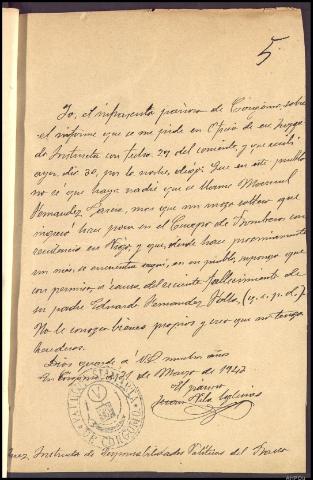 5
Yo, el infrascrito párroco de Corgomo, sobre
el informe que se me pide en Oficio de ese Juzgado
de Instructa con fecha 29 del corriente, y que recibí
ayer, día 30, por la noche, digo: Que en este pueblo
no sé que haya nadie que se llame Manuel
Fernandez García, mas que un mozo soltero que
ingresó hace poco en el Cuerpo de Bomberos con
residencia en Vigo, y que, desde hace proximamente
un mes, se encuentra aquí, en su pueblo, supongo que
con permiso, a causa del reciente fallecimiento de
su padre Eduardo Fernandez (q. e. p. d.).
No le conozco bienes propios y creo que no tenga
herederos.
Dios guarde á V.S. muchos años
En Corgomo á 31 de Marzo de 1942
El párroco
Vila Iglesias
PARROQUIA DE CORGOMO
Juez Instructa de Responsabilidades Políticas del Barco